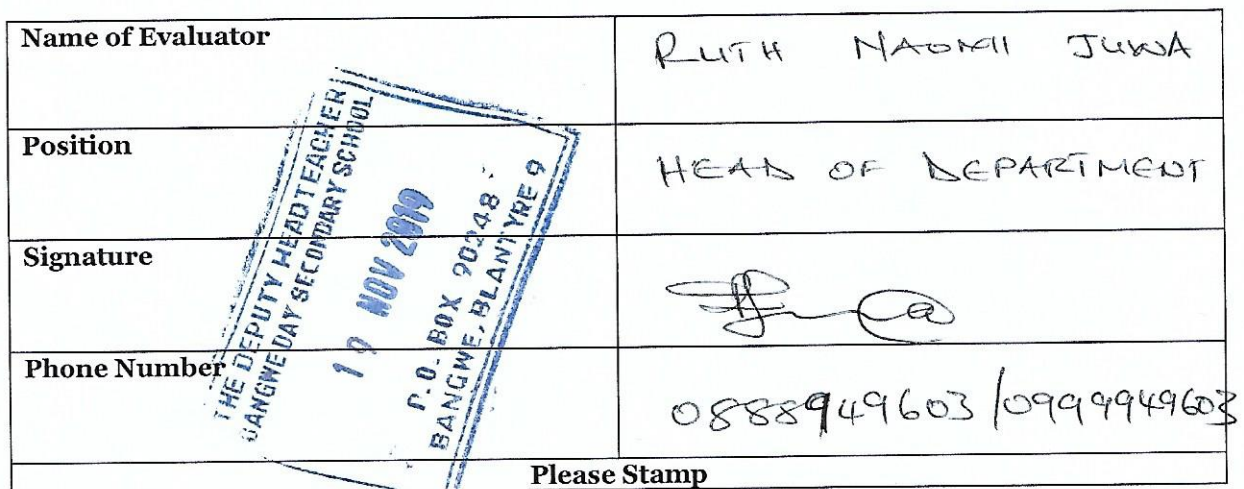 Name of Evaluator
RUTH NAOMI JUWA
Position
HEAD OF DEPARTMENT
Signature
Phone Number
0888949603 / 0999949603
THE DEPUTY HEADTEACHER
BANGWE DAY SECONDARY SCHOOL
NOV 2019
P.O. BOX 90248
BANGWE, BLANTYRE 9
Please Stamp